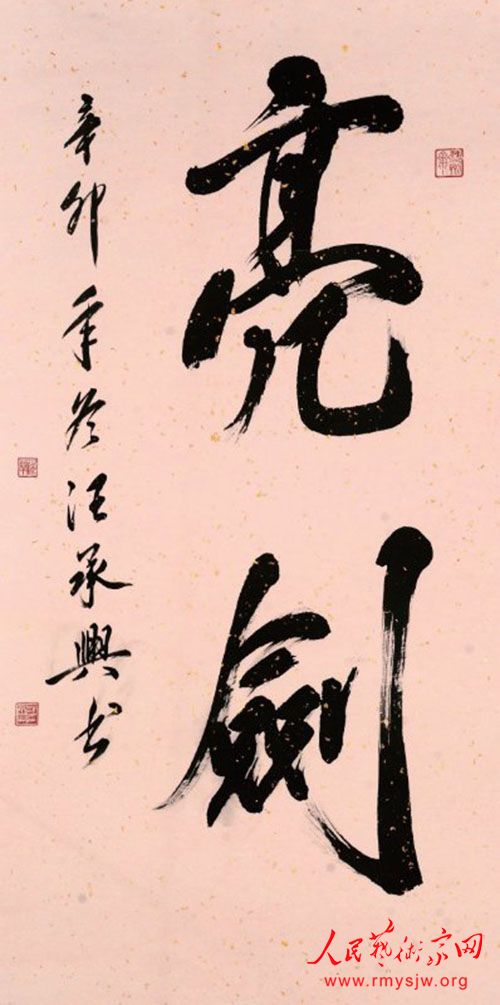 亮劍
辛卯年冬汪承興书
人民藝術家网
www.rmysjw.org